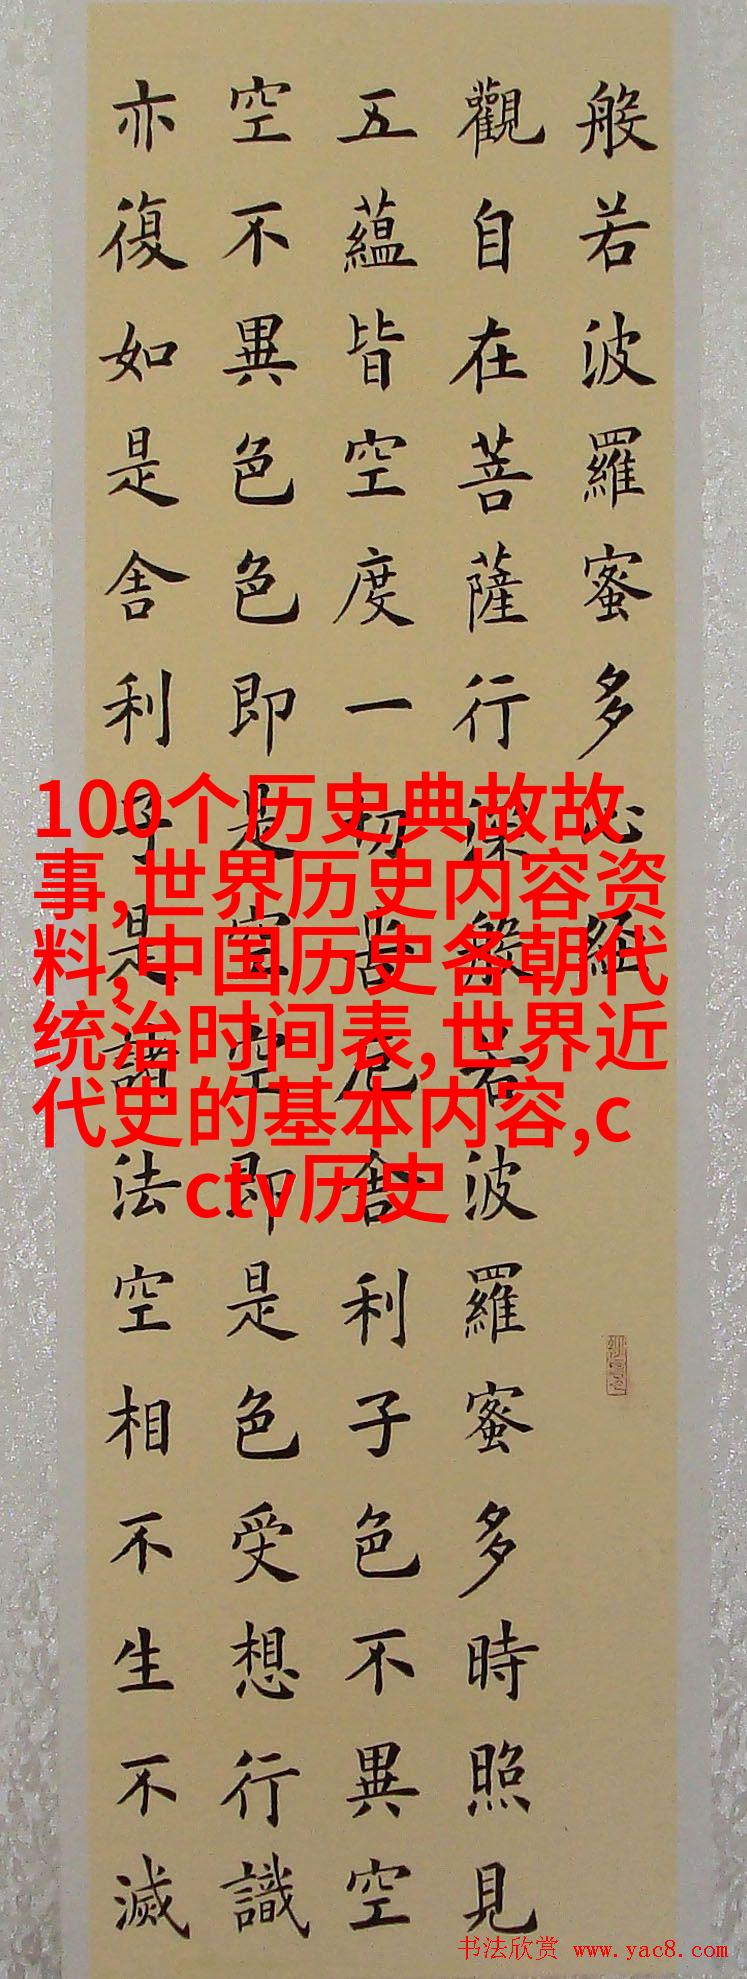 般若波羅蜜多心經
觀自在菩薩行深般若波羅蜜多時照見
五蘊皆空度一切苦厄舍利子色不異空
空不異色色即是空空即是色受想行識
亦復如是舍利子是諸法空相不生不滅
100个历史典故故
事,世界历史内容资
料,中国历史各朝代
统治时间表,世界近
代史的基本内容,c
ctv历史
书法欣赏 www.yac8.com